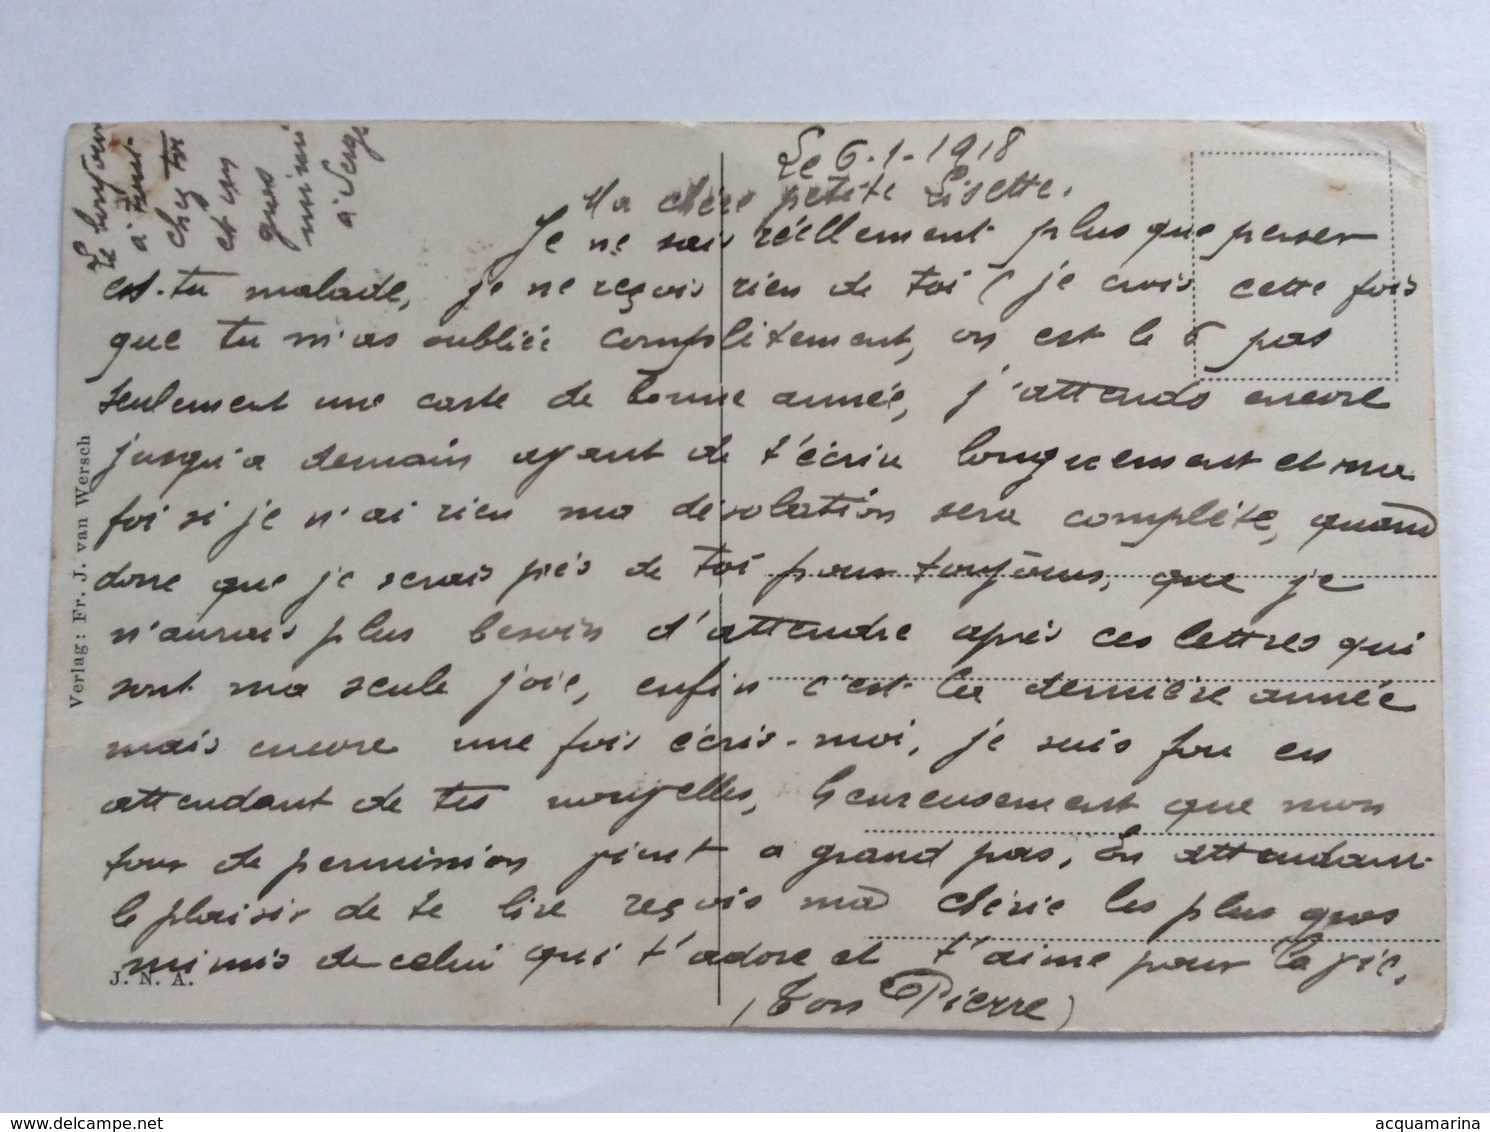 Le 6-1-1918
Ma chère petite Lisette.
Je ne sais réellement plus que penser
es-tu malade, je ne reçois rien de toi je crois cette fois
que tu m'as oublié complètement, on est le 6 pas
seulement une carte de bonne année, j'attends encore
jusqu'a demain avant de t'écrire longuement et ma
foi si je n'ai rien ma désolation sera complète, quand
donc que je serais près de toi pour toujours, que je
n'aurais plus besoin d'attendre après ces lettres qui
sont ma seule joie, enfin c'est la dernière année
mais encore une fois écris-moi, je suis fou en
attendant de tes nouvelles, heureusement que mon
tour de permission vient a grand pas. En attendant
le plaisir de te lire reçois ma chérie les plus gros
mimis de celui qui t'adore et t'aime pour la vie.
(Ton Pierre)
Le bonjour
à tous
chez toi
et un
gros
mimi
à Serge
Verlag: Fr. J. van Wersch
J. N. A.
www.delcampe.net
acquamarina